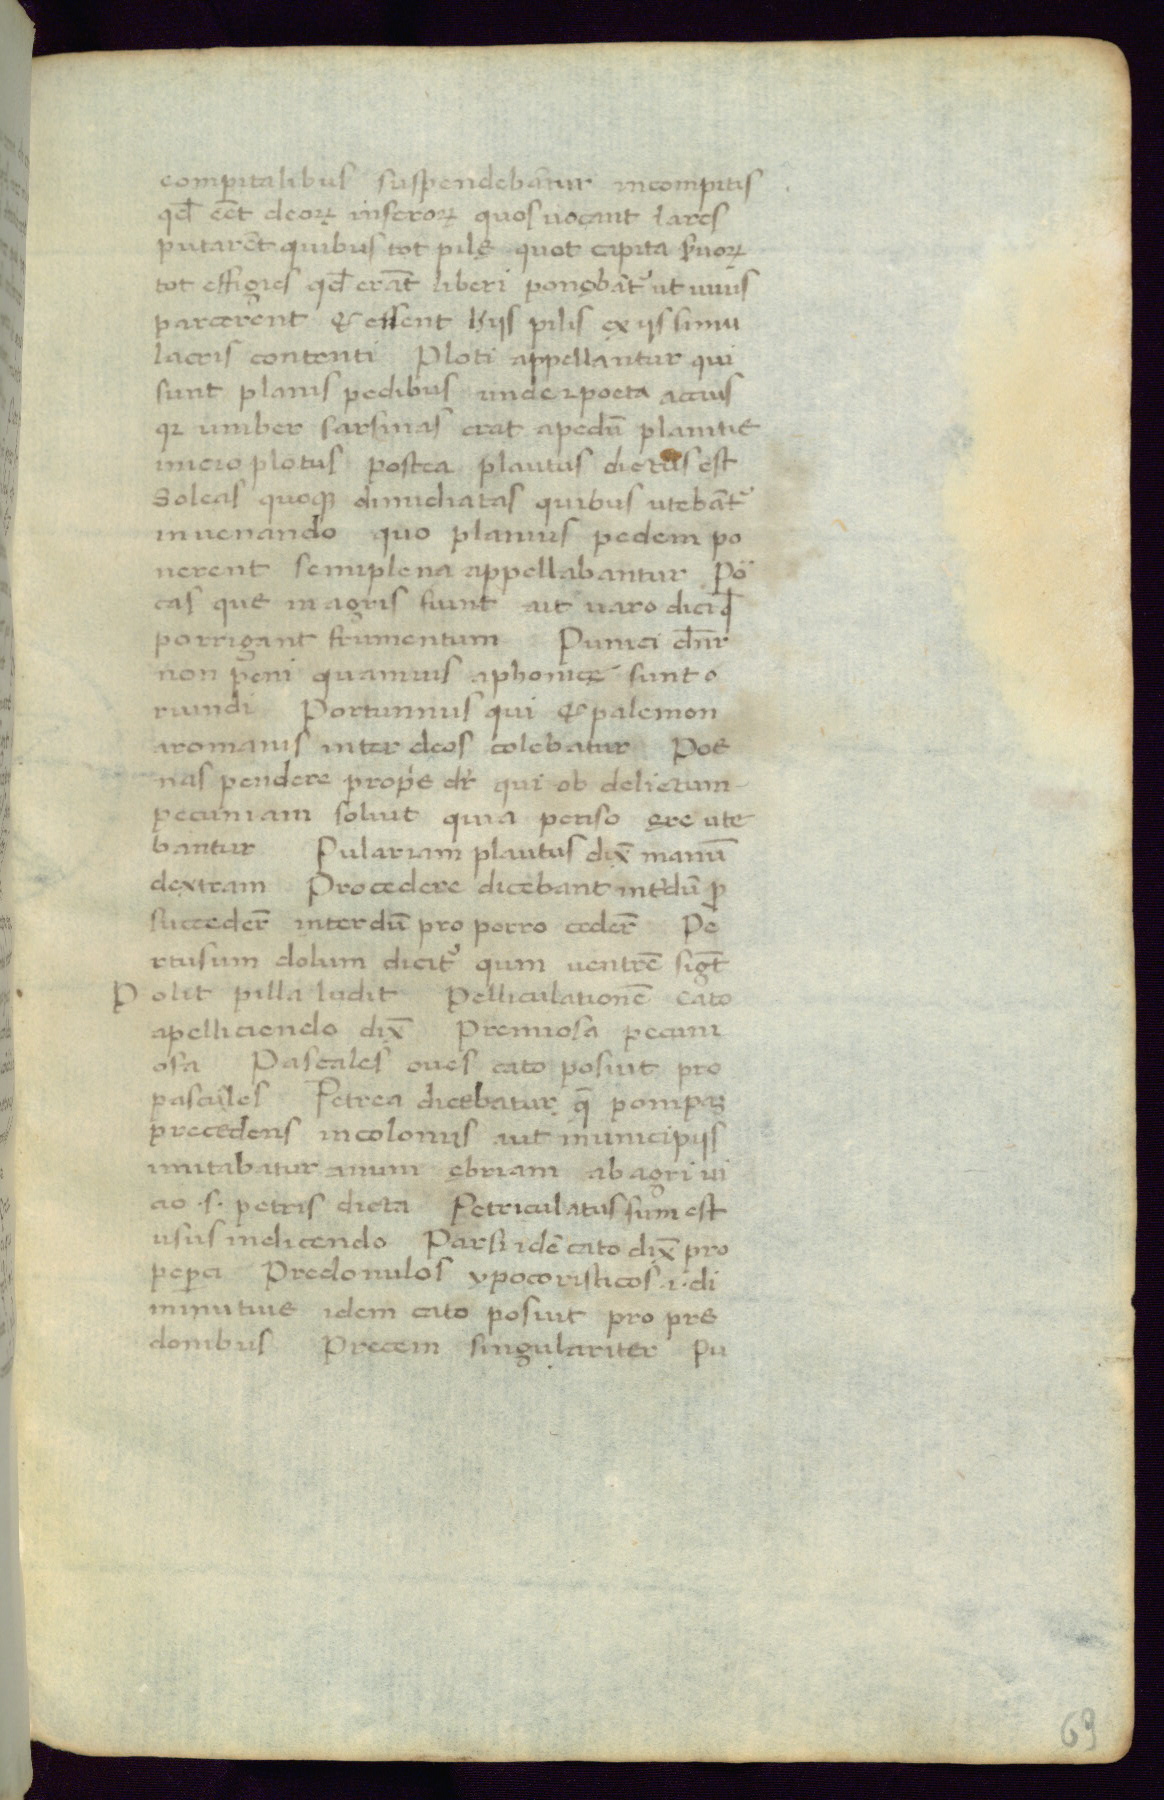 compitalibus suspendebantur incompitis
qđ eēt deoꝝ inferoꝝ quos uocant lares
putarēt quibus tot pilę quot capita ẜuoꝝ
tot effigies qđ erāt liberi ponebāt᷑ ut uiuis
parcerent & essent hijs pilis ex ijs simu
lacris contenti Ploti appellantur qui
sunt planis pedibus unde ⁊ poeta accius
qꝛ umber sarsinas erat apedū planitie
inicio plotus postea plautus dictus est
Soleas quoqꝫ dimidiatas quibus utebāt᷑
in uenando quo planius pedem po
nerent semiplena appellabantur Po
cas que in agris fiunt ait uaro dici ꝙ
porrigant frumentum Punici dn̄r
non peni quamuis aphonice sunt o
riundi Portunnus qui & palemon
aromanis inter deos colebatur Poe
nas pendere prop̄e dr̄ qui ob delictum
pecuniam soluit quia penso ęre ute
bantur Pulariam plautus dix̄ manū
dextram Procedere dicebant int̄dū ꝓ
succeder̄ interdū pro porro ceder̄ Pe
rtusum dolum dicit᷑ qum uentrē sigt̄
Polit pilla ludit Pelliculationē cato
apelliciendo dix̄ Premiosa pecuni
osa Pascales oues cato posuit pro
pascules Petrea dicebatur q̄ pompaꝫ
precedens incolonijs aut municipijs
imitabatur anum ebriam ab agri ui
cio .s. petris dicta Petriculatus sum est
usus indicendo Parsi idē cato dix̄ pro
peꝑci Predonulos ypocoristicos .i. di
minutiue idem cato posuit pro pre
donibus Precem singulariter pu
69